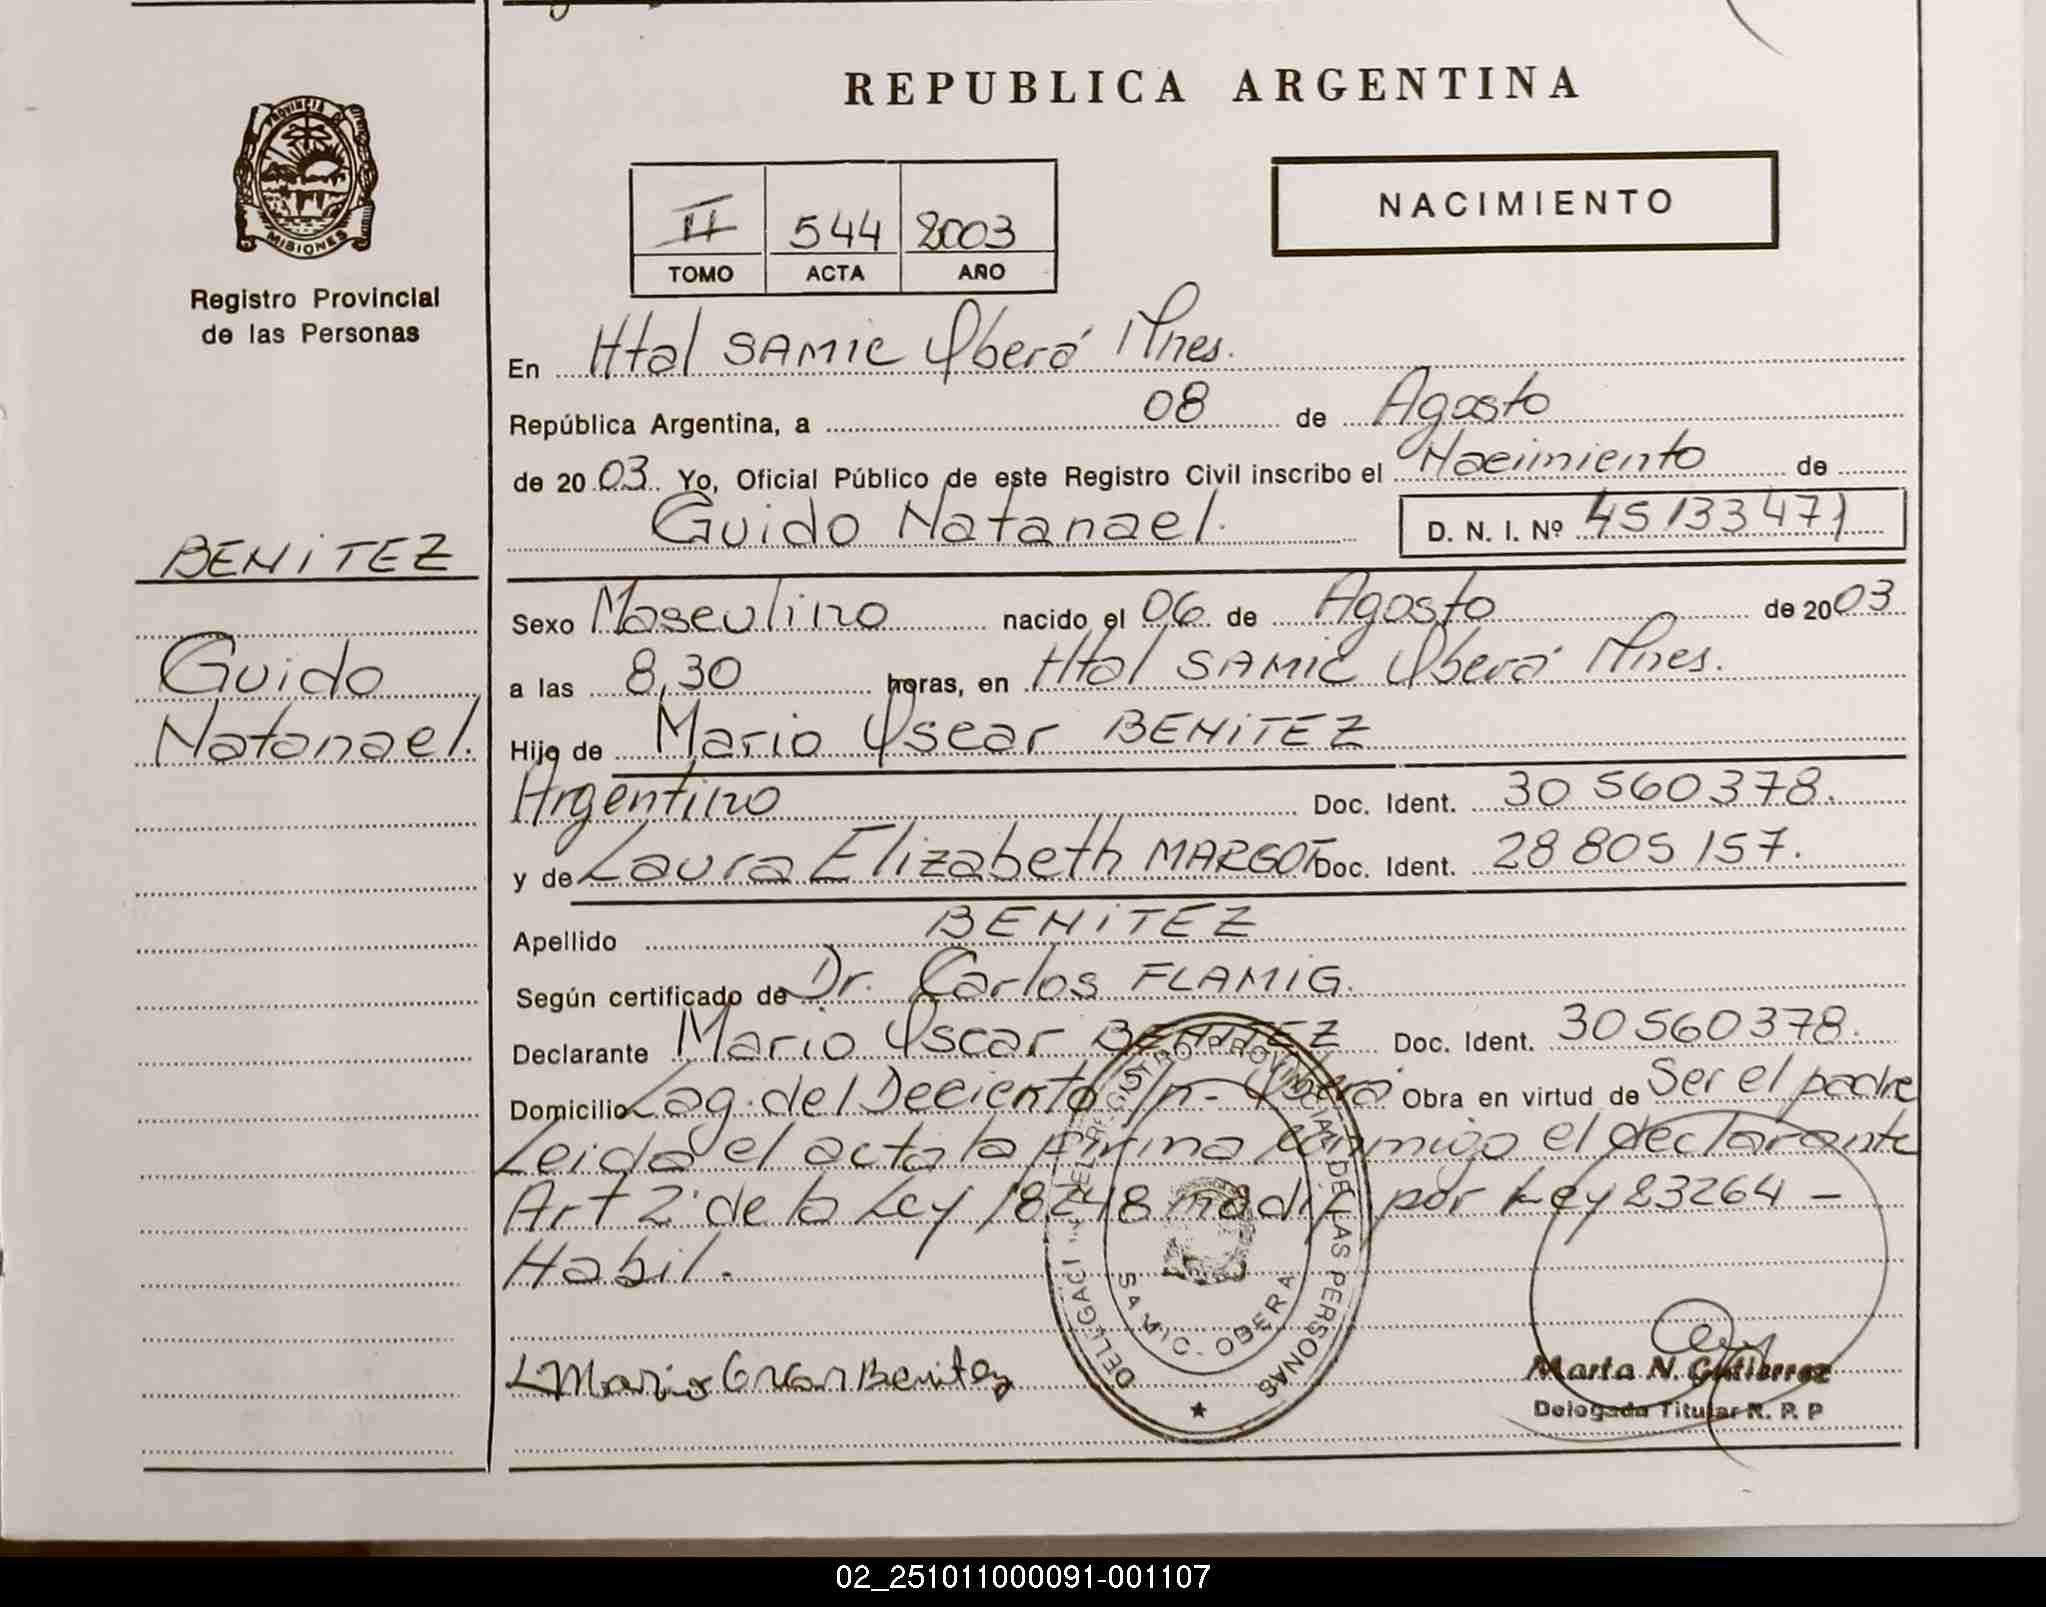 REPUBLICA ARGENTINA
PROVINCIA DE
MISIONES
Registro Provincial
de las Personas
NACIMIENTO
II 544 2003
TOMO ACTA AÑO
En Htal SAMIC Oberá Mnes.
República Argentina, a 08 de Agosto
de 2003. Yo, Oficial Público de este Registro Civil inscribo el Nacimiento de
Guido Natanael. D. N. I. Nº 45133471
BENITEZ
Guido
Natanael.
Sexo Masculino nacido el 06 de Agosto de 2003
a las 8,30 horas, en Htal SAMIC Oberá Mnes.
Hijo de Mario Oscar BENITEZ
Argentino Doc. Ident. 30 560378.
y de Laura Elizabeth MARGOT Doc. Ident. 28 805 157.
Apellido BENITEZ
Según certificado de Dr. Carlos FLAMIG.
Declarante Mario Oscar BENITEZ Doc. Ident. 30560378.
Domicilio Lag. del Deciento S/n - Oberá Obra en virtud de Ser el padre
Leida el acta la firma conmigo el declarante
Art 2 de la Ley 18248 modif por Ley 23264 -
Habil.
DEL REGISTRO PROVINCIAL DE LAS PERSONAS
SAMIC - OBERA
Mario Oscar Benitez
Marta N. Gutierrez
Delegada Titular R. P. P
02_251011000091-001107